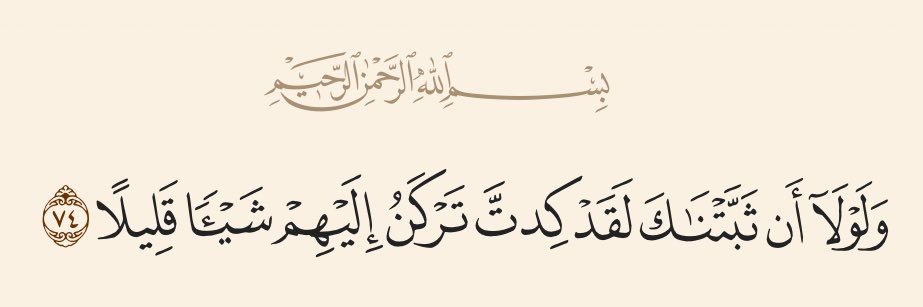 بِسْمِ ٱللَّهِ ٱلرَّحْمَٰنِ ٱلرَّحِيمِ
وَلَوْلَآ أَن ثَبَّتْنَٰكَ لَقَدْ كِدتَّ تَرْكَنُ إِلَيْهِمْ شَيْـًٔا قَلِيلًا ٧٤